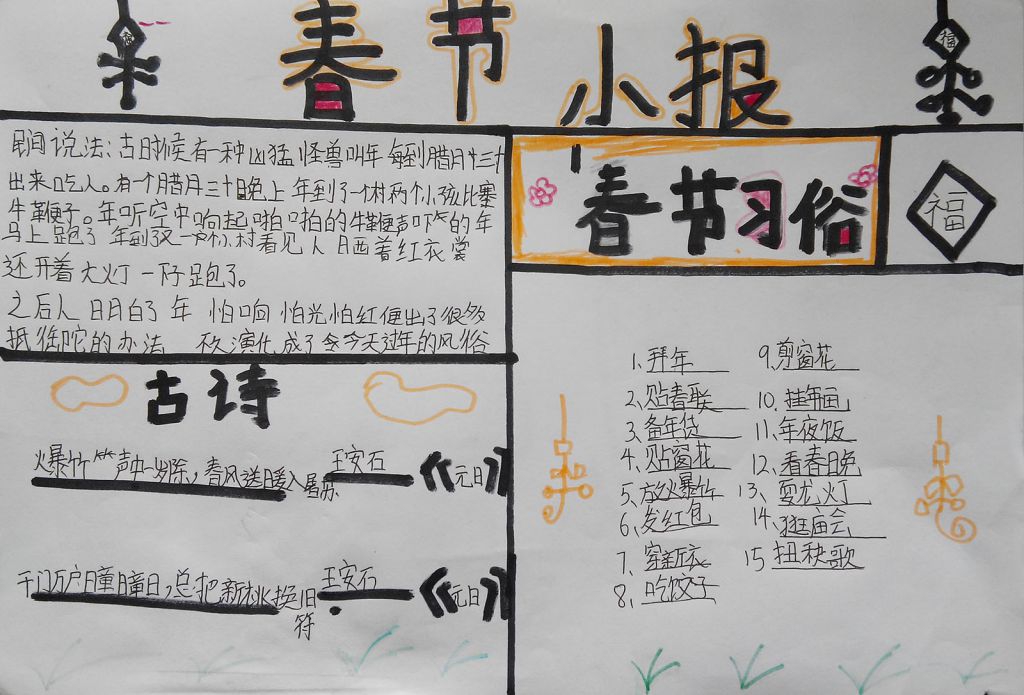 春节小报
福
福
民间说法:古时候有一种凶猛怪兽叫年每到腊月十三十
出来吃人。有一个腊月三十晚上年到了一个村两个小孩比赛
牛鞭子。年听空中响起啪啪的牛鞭声吓的年
马上跑了年到又一个小村看见人晒着红衣裳
还开着大灯一下子跑了。
之后人明白了年怕响怕光怕红便出了很多
抵御的办法 演化成了今天过年的风俗
春节习俗
福
古诗
爆竹声中一岁除,春风送暖入屠苏 王安石《元日》
千门万户瞳瞳日,总把新桃换旧符 王安石《元日》
1、拜年
2、贴春联
3、备年货
4、贴窗花
5、放火暴竹
6、发红包
7、穿新衣
8、吃饺子
9、剪窗花
10、挂年画
11、年夜饭
12、看春晚
13、耍龙灯
14、逛庙会
15、扭秧歌